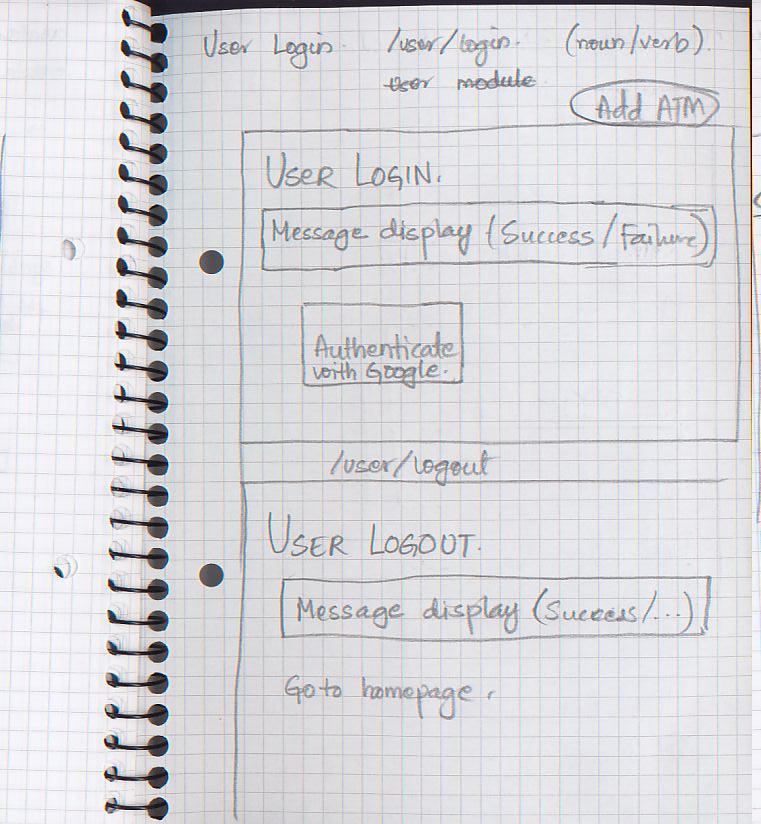 User Login. /user/login. (noun/verb).
User module
Add ATM
USER LOGIN.
Message display (Success/Failure)
Authenticate
with Google.
/user/logout
USER LOGOUT.
Message display (Success/...)
Goto homepage.